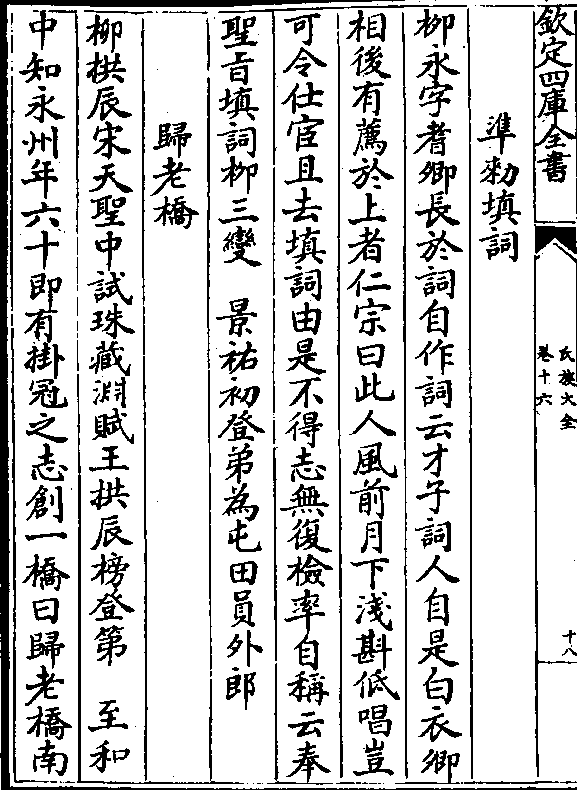 欽定四庫全書
氏族大全
卷十六
十八
準勅填詞
柳永字耆卿長於詞自作詞云才子詞人自是白衣卿
相後有薦於上者仁宗曰此人風前月下淺斟低唱豈
可令仕宦且去填詞由是不得志無復檢率自稱云奉
聖旨填詞柳三變　景祐初登第為屯田員外郎
歸老橋
柳拱辰宋天聖中試珠藏淵賦王拱辰榜登第　至和
中知永州年六十即有掛冠之志創一橋曰歸老橋南